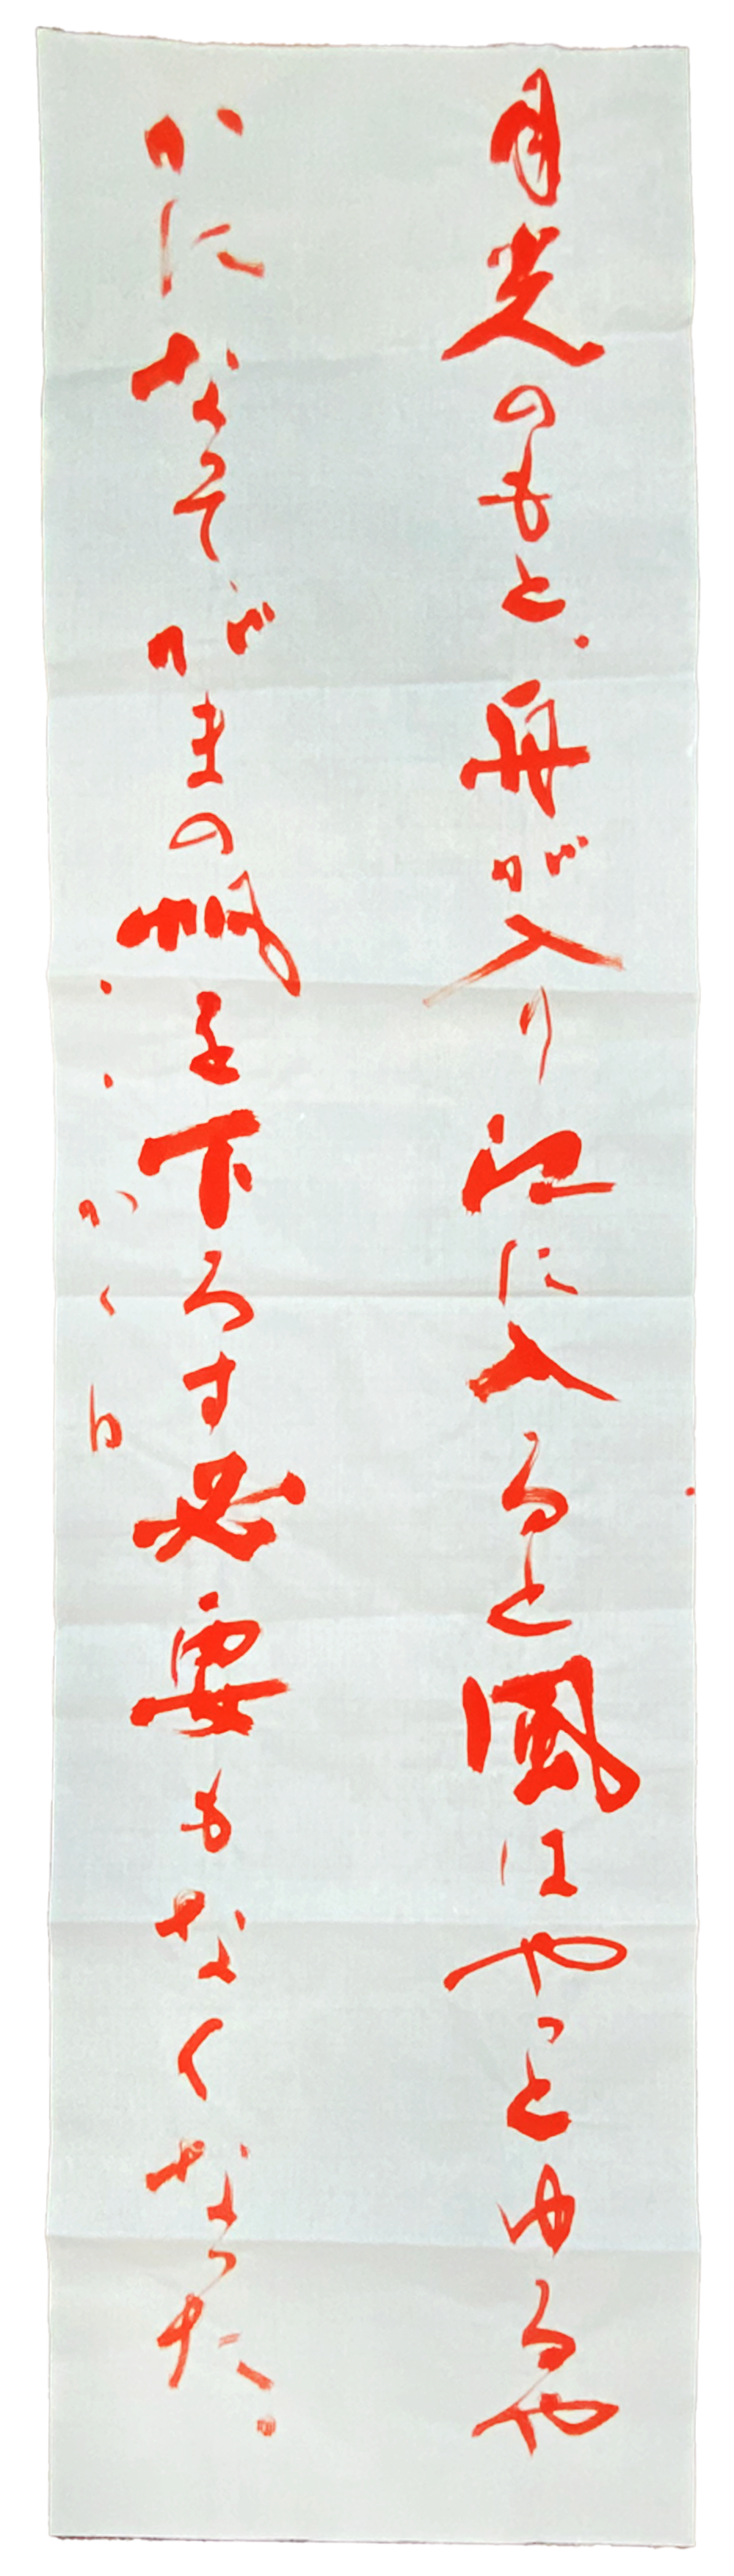 月光のもと、舟が入り江に入ると風はやっとゆるや
かになってがまの帆を下ろす必要もなくなった。